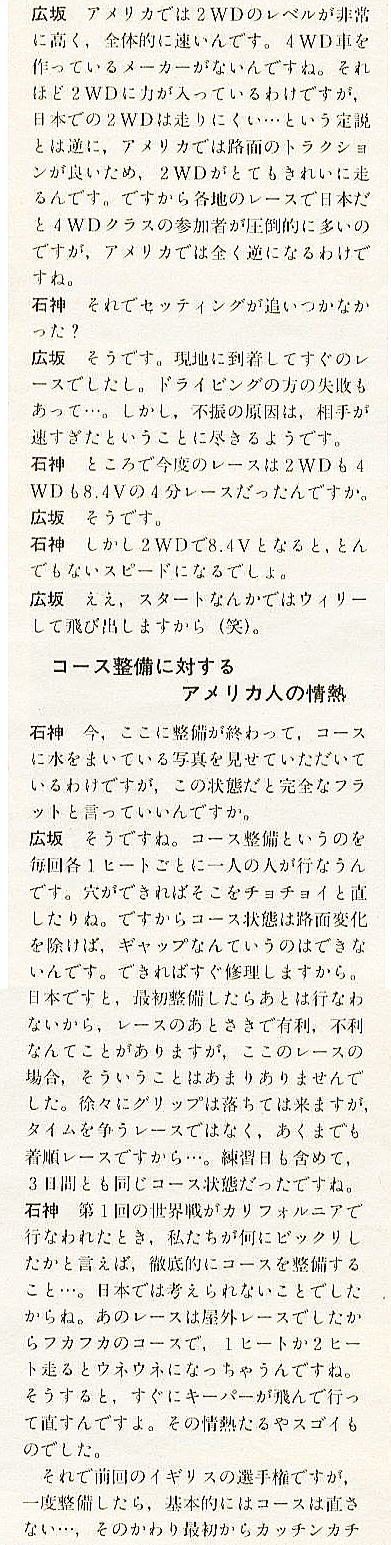 広坂　アメリカでは2WDのレベルが非常
に高く，全体的に速いんです。4WD車を
作っているメーカーがないんですね。それ
ほど2WDに力が入っているわけですが，
日本での2WDは走りにくい…という定説
とは逆に，アメリカでは路面のトラクショ
ンが良いため，2WDがとてもきれいに走
るんです。ですから各地のレースで日本だ
と4WDクラスの参加者が圧倒的に多いの
ですが，アメリカでは全く逆になるわけで
すね。
石神　それでセッティングが追いつかなか
った？
広坂　そうです。現地に到着してすぐのレ
ースでしたし。ドライビングの方の失敗も
あって…。しかし，不振の原因は，相手が
速すぎたということに尽きるようです。
石神　ところで今度のレースは2WDも4
WDも8.4Vの4分レースだったんですか。
広坂　そうです。
石神　しかし2WDで8.4Vとなると，とん
でもないスピードになるでしょ。
広坂　ええ，スタートなんかではウィリー
して飛び出しますから（笑）。
コース整備に対する
アメリカ人の情熱
石神　今，ここに整備が終わって，コース
に水をまいている写真を見せていただいて
いるわけですが，この状態だと完全なフラ
ットと言っていいんですか。
広坂　そうですね。コース整備というのを
毎回各1ヒートごとに一人の人が行なうん
です。穴ができればそこをチョチョイと直
したりね。ですからコース状態は路面変化
を除けば，ギャップなんていうのはできな
いんです。できればすぐ修理しますから。
日本ですと，最初整備したらあとは行なわ
ないから，レースのあとさきで有利，不利
なんてことがありますが，ここのレースの
場合，そういうことはあまりありませんで
した。徐々にグリップは落ちては来ますが，
タイムを争うレースではなく，あくまでも
着順レースですから…。練習日も含めて，
3日間とも同じコース状態だったですね。
石神　第1回の世界戦がカリフォルニアで
行なわれたとき，私たちが何にビックリし
たかと言えば，徹底的にコースを整備する
こと…。日本では考えられないことでした
からね。あのレースは屋外レースでしたか
らフカフカのコースで，1ヒートか2ヒー
ト走るとウネウネになっちゃうんですね。
そうすると，すぐにキーパーが飛んで行っ
て直すんですよ。その情熱たるやスゴイも
のでした。
　それで前回のイギリスの選手権ですが，
一度整備したら，基本的にはコースは直さ
ない…，そのかわり最初からカッチンカチ